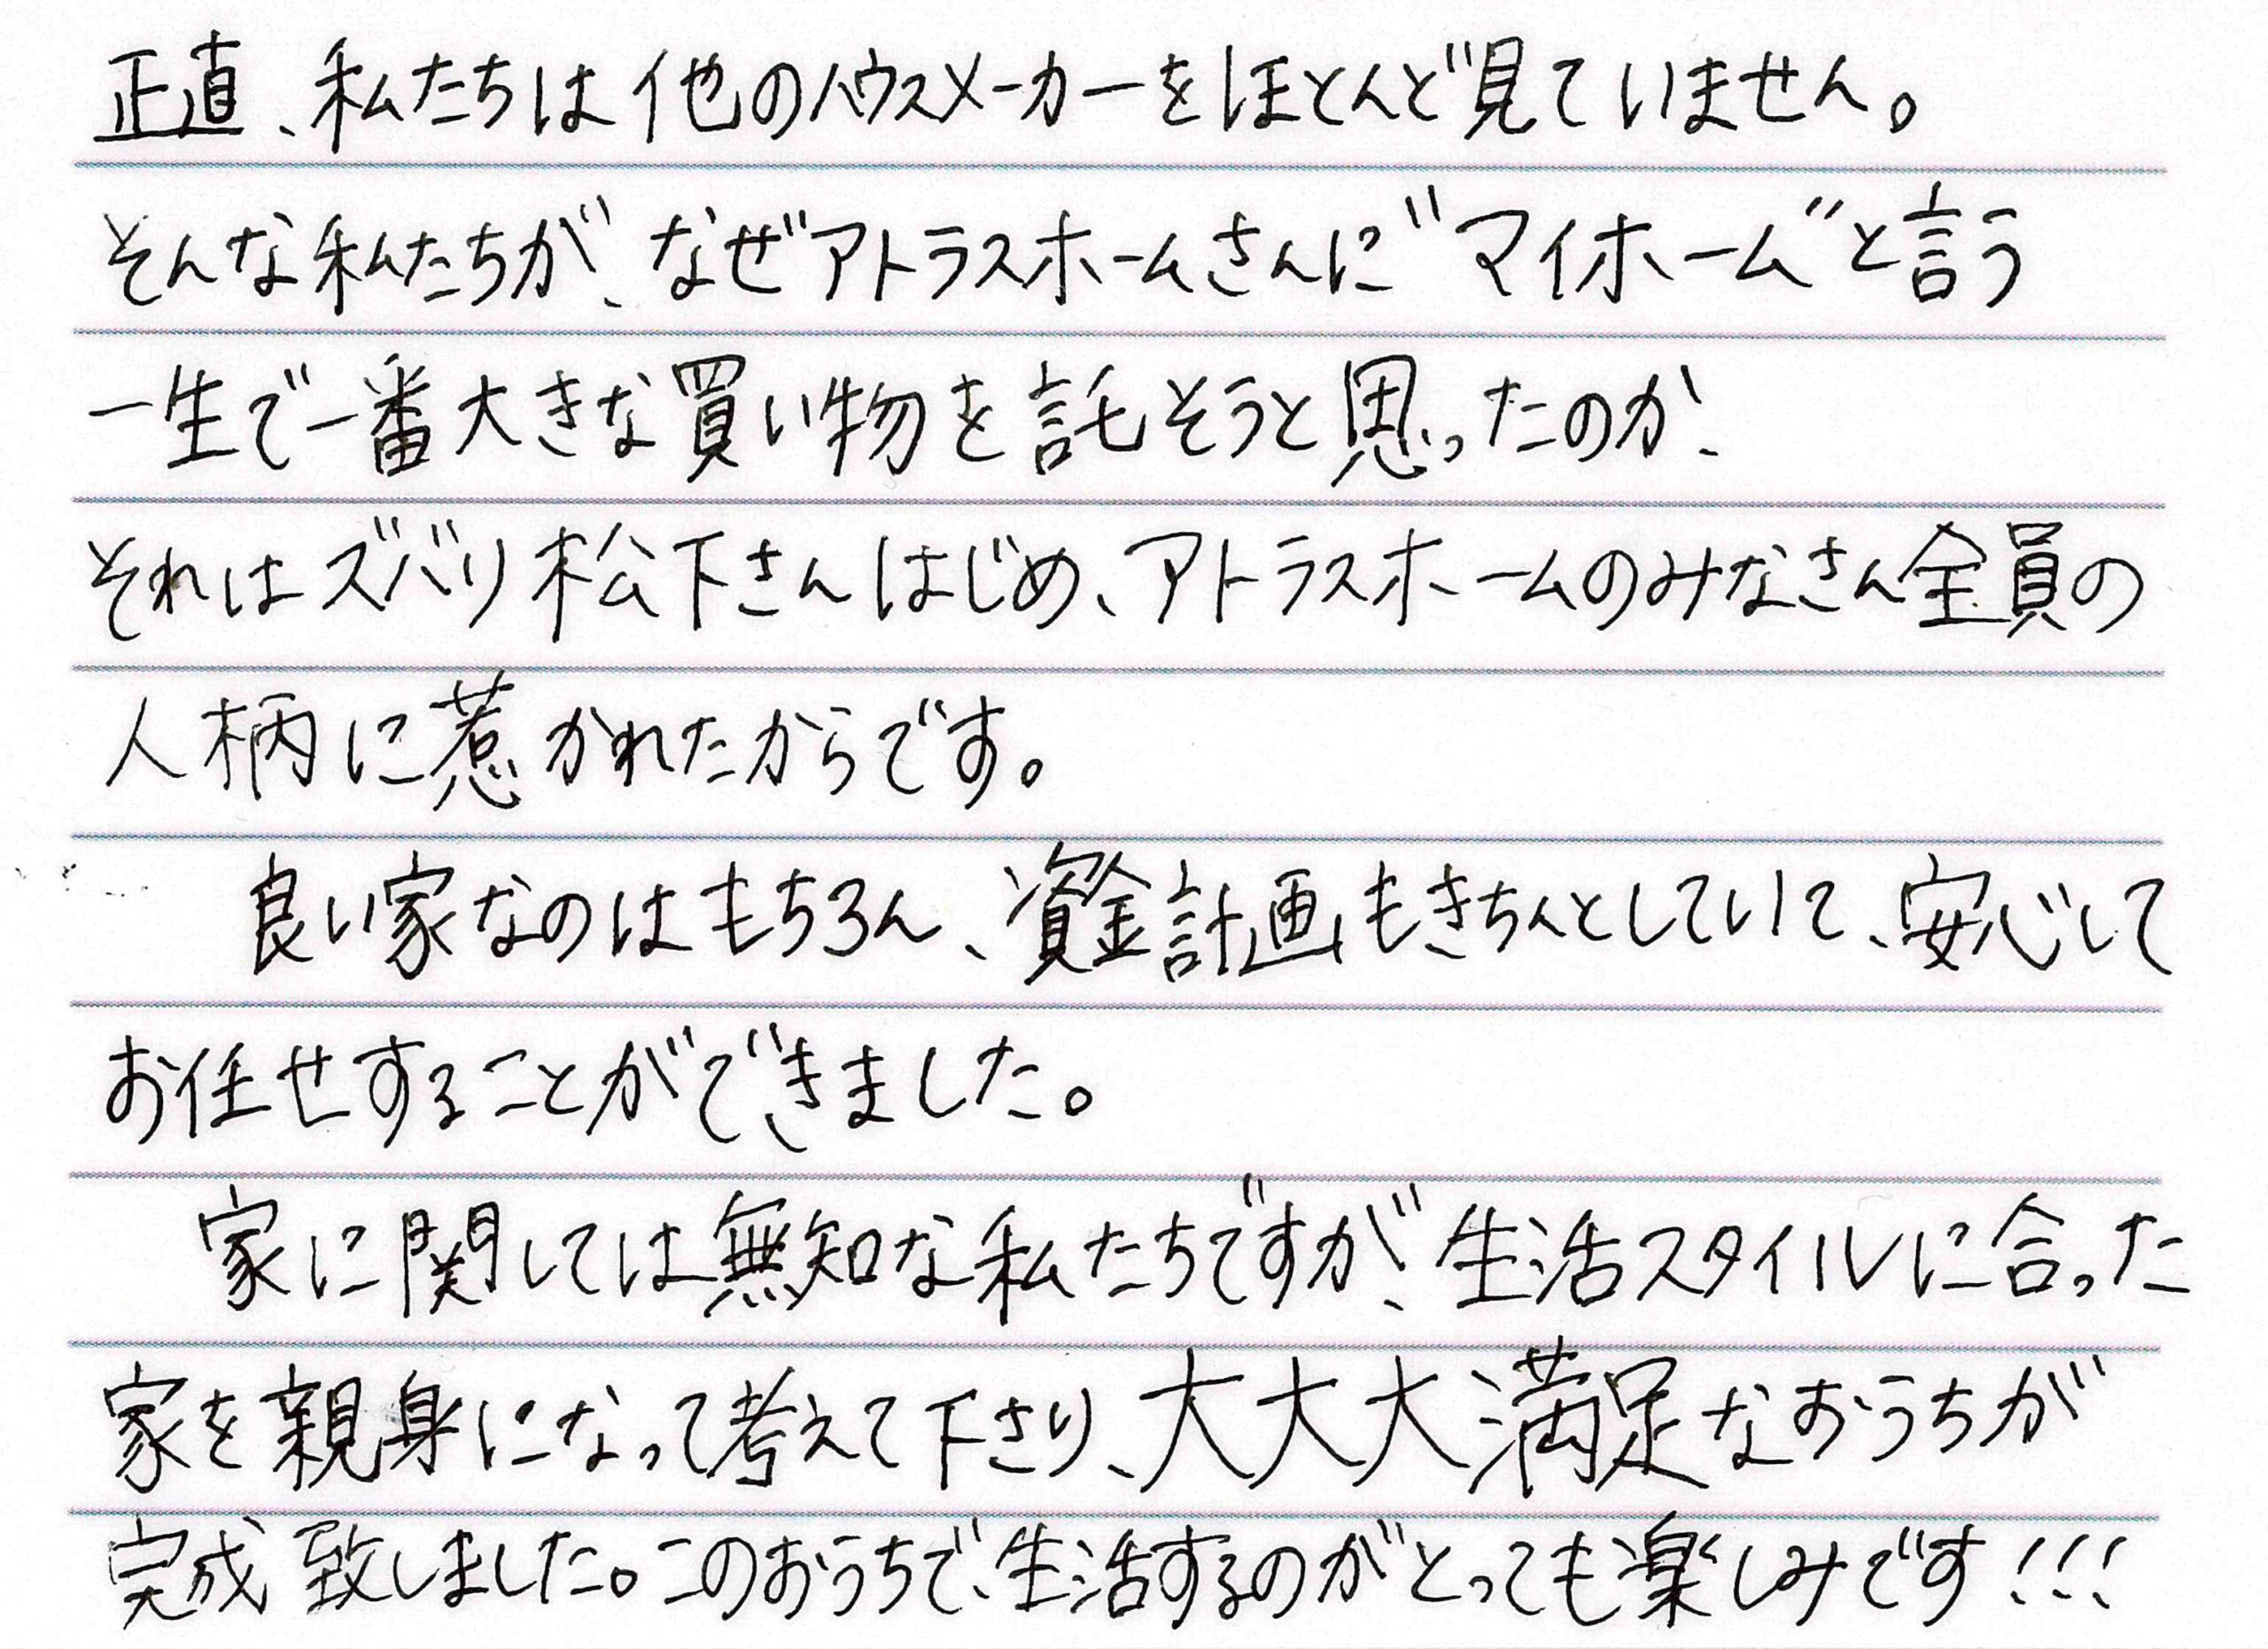 正直、私たちは他のハウスメーカーをほとんど見ていません。
そんな私たちが、なぜアトラスホームさんに"マイホーム"と言う
一生で一番大きな買い物を託そうと思ったのか、
それはズバリ松下さんはじめ、アトラスホームのみなさん全員の
人柄に惹かれたからです。
良い家なのはもちろん、資金計画もきちんとしていて、安心して
お任せすることができました。
家に関しては無知な私たちですが、生活スタイルに合った
家を親身になって考えて下さり、大大大満足なおうちが
完成致しました。このおうちで、生活するのがとっても楽しみです!!!